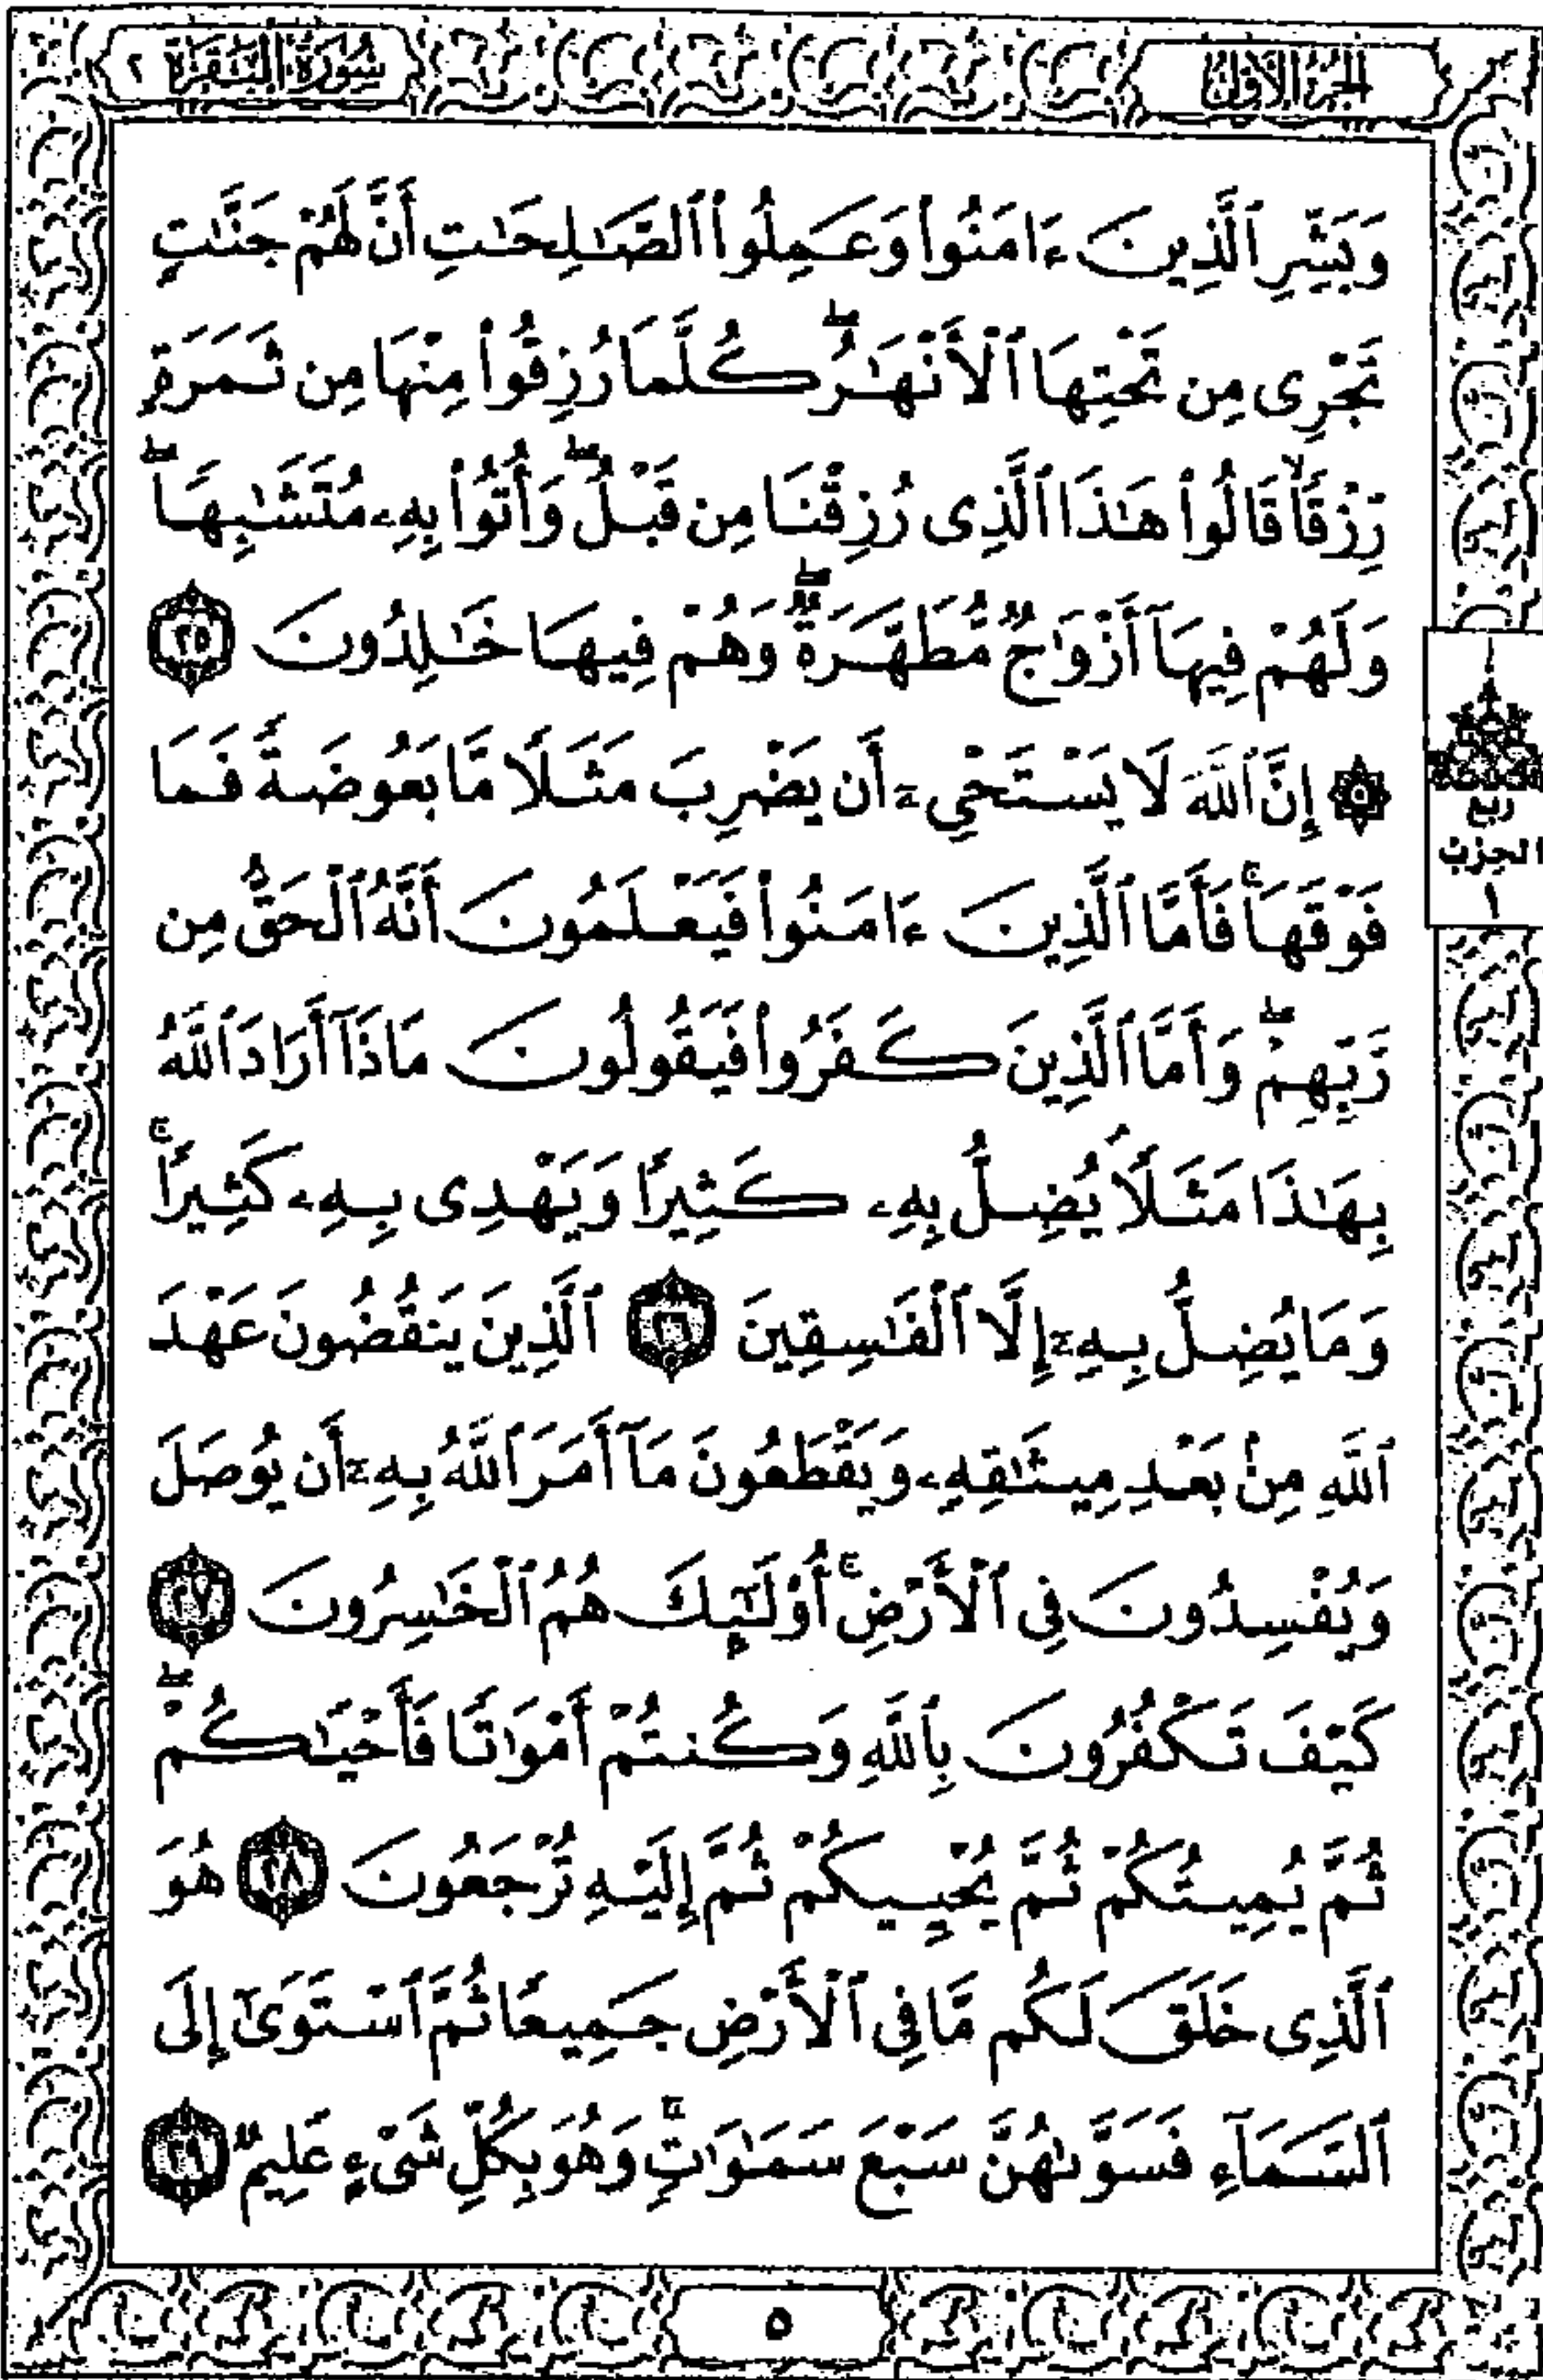 الجزء الأول
سورة البقرة ٢
وَبَشِّرِ ٱلَّذِينَ ءَامَنُوا۟ وَعَمِلُوا۟ ٱلصَّـٰلِحَـٰتِ أَنَّ لَهُمْ جَنَّـٰتٍ
تَجْرِى مِن تَحْتِهَا ٱلْأَنْهَـٰرُ ۖ كُلَّمَا رُزِقُوا۟ مِنْهَا مِن ثَمَرَةٍ
رِّزْقًا ۙ قَالُوا۟ هَـٰذَا ٱلَّذِى رُزِقْنَا مِن قَبْلُ ۖ وَأُتُوا۟ بِهِۦ مُتَشَـٰبِهًا ۖ
وَلَهُمْ فِيهَآ أَزْوَٰجٌ مُّطَهَّرَةٌ ۖ وَهُمْ فِيهَا خَـٰلِدُونَ ٢٥
۞ إِنَّ ٱللَّهَ لَا يَسْتَحْىِۦٓ أَن يَضْرِبَ مَثَلًا مَّا بَعُوضَةً فَمَا
فَوْقَهَا ۚ فَأَمَّا ٱلَّذِينَ ءَامَنُوا۟ فَيَعْلَمُونَ أَنَّهُ ٱلْحَقُّ مِن
رَّبِّهِمْ ۖ وَأَمَّا ٱلَّذِينَ كَفَرُوا۟ فَيَقُولُونَ مَاذَآ أَرَادَ ٱللَّهُ
بِهَـٰذَا مَثَلًا ۘ يُضِلُّ بِهِۦ كَثِيرًا وَيَهْدِى بِهِۦ كَثِيرًا ۚ
وَمَا يُضِلُّ بِهِۦٓ إِلَّا ٱلْفَـٰسِقِينَ ٢٦ ٱلَّذِينَ يَنقُضُونَ عَهْدَ
ٱللَّهِ مِنۢ بَعْدِ مِيثَـٰقِهِۦ وَيَقْطَعُونَ مَآ أَمَرَ ٱللَّهُ بِهِۦٓ أَن يُوصَلَ
وَيُفْسِدُونَ فِى ٱلْأَرْضِ ۚ أُو۟لَـٰٓئِكَ هُمُ ٱلْخَـٰسِرُونَ ٢٧
كَيْفَ تَكْفُرُونَ بِٱللَّهِ وَكُنتُمْ أَمْوَٰتًا فَأَحْيَـٰكُمْ ۖ
ثُمَّ يُمِيتُكُمْ ثُمَّ يُحْيِيكُمْ ثُمَّ إِلَيْهِ تُرْجَعُونَ ٢٨ هُوَ
ٱلَّذِى خَلَقَ لَكُم مَّا فِى ٱلْأَرْضِ جَمِيعًا ثُمَّ ٱسْتَوَىٰٓ إِلَى
ٱلسَّمَآءِ فَسَوَّىٰهُنَّ سَبْعَ سَمَـٰوَٰتٍ ۚ وَهُوَ بِكُلِّ شَىْءٍ عَلِيمٌ ٢٩
ربع
الحزب
١
٥